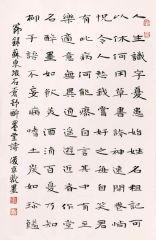 人生識字憂患始姓名粗記可
以休何用草書誇神速開卷惝
怳令人愁我嘗好之每自笑君
有此病何能瘳自言其中有至
樂適意無異逍遙遊近者作堂
名醉墨如飲美酒消百憂乃知
柳子語不妄病嗜土炭如珍羞
節錄蘇東坡石蒼舒醉墨堂詩